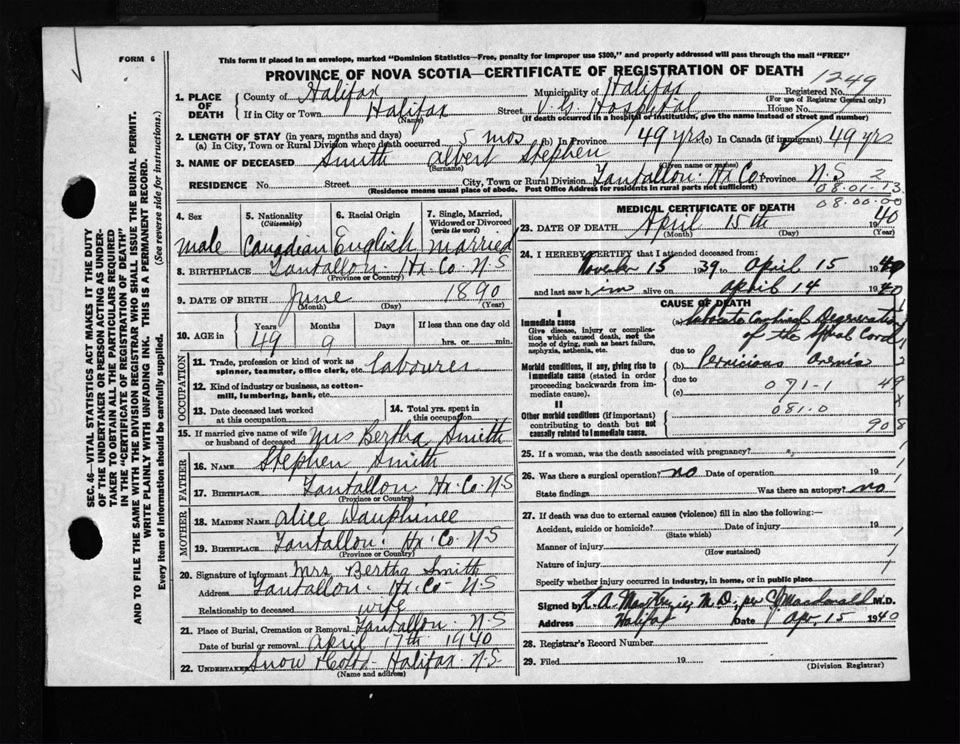 This form if placed in an envelope, marked "Dominion Statistics—Free, penalty for improper use $300," and properly addressed will pass through the mail "FREE"
FORM 6
PROVINCE OF NOVA SCOTIA—CERTIFICATE OF REGISTRATION OF DEATH
1249
1. PLACE OF DEATH
County of Halifax Municipality of Halifax Registered No.
(For use of Registrar General only)
If in City or Town Halifax Street V. G. Hospital House No.
(Name) (If death occurred in a hospital or institution, give the name instead of street and number)
2. LENGTH OF STAY (in years, months and days)
(a) In City, Town or Rural Division where death occurred 5 mos (b) In Province 49 yrs (c) In Canada (if immigrant) 49 yrs
3. NAME OF DECEASED Smith Albert Stephen
(Surname) (Given name or names)
RESIDENCE No. Street City, Town or Rural Division Tantallon Hx Co Province N.S 2
(Residence means usual place of abode. Post Office Address for residents in rural parts not sufficient)
08.01.13
08.00.00
4. Sex 5. Nationality (Citizenship) 6. Racial Origin 7. Single, Married, Widowed or Divorced (write the word)
male Canadian English married
8. BIRTHPLACE Tantallon Hx Co N-S
(Province or Country)
9. DATE OF BIRTH June 1890
(Month) (Day) (Year)
10. AGE in Years Months Days If less than one day old
49 9 hrs. or min.
OCCUPATION
11. Trade, profession or kind of work as spinner, teamster, office clerk, etc. labourer
12. Kind of industry or business, as cotton-mill, lumbering, bank, etc.
13. Date deceased last worked at this occupation 14. Total yrs. spent in this occupation
15. If married give name of wife or husband of deceased Mrs Bertha Smith
FATHER
16. NAME Stephen Smith
17. BIRTHPLACE Tantallon Hx Co N-S
(Province or Country)
MOTHER
18. MAIDEN NAME Alice Dauphinee
19. BIRTHPLACE Tantallon Hx Co N-S
(Province or Country)
20. Signature of informant Mrs Bertha Smith
Address Tantallon Hx Co N-S
Relationship to deceased wife
21. Place of Burial, Cremation or Removal Tantallon N-S
Date of burial or removal April 17th 1940
22. UNDERTAKER Snow & Co Ltd Halifax N-S
(Name and address)
MEDICAL CERTIFICATE OF DEATH
23. DATE OF DEATH April 15th 1940
(Month) (Day) (Year)
24. I HEREBY CERTIFY that I attended deceased from:
November 15 1939 to April 15 1940
and last saw him alive on April 14 1940
CAUSE OF DEATH
I
Immediate cause
Give disease, injury or complication which caused death, not the mode of dying, such as heart failure, asphyxia, asthenia, etc.
(a) Degeneration of the Spinal Cord
due to
Morbid conditions, if any, giving rise to immediate cause (stated in order proceeding backwards from immediate cause).
(b) Pernicious
due to
(c) 071-1 49
II
081.0
Other morbid conditions (if important) contributing to death but not causally related to immediate cause.
908
25. If a woman, was the death associated with pregnancy?
26. Was there a surgical operation? no Date of operation 19
State findings Was there an autopsy? no
27. If death was due to external causes (violence) fill in also the following:—
Accident, suicide or homicide? Date of injury 19
(State which)
Manner of injury
(How sustained)
Nature of injury
Specify whether injury occurred in industry, in home, or in public place
Signed by L. A. MacKenzie M.D., per C J Macdonald M.D.
Address Halifax Date Apr. 15 1940
28. Registrar's Record Number
29. Filed 19
(Division Registrar)
SEC. 46—VITAL STATISTICS ACT MAKES IT THE DUTY
OF THE UNDERTAKER OR PERSON ACTING AS UNDER-
TAKER TO OBTAIN ALL THE PARTICULARS REQUIRED
IN THE "CERTIFICATE OF REGISTRATION OF DEATH"
AND TO FILE THE SAME WITH THE DIVISION REGISTRAR WHO SHALL ISSUE THE BURIAL PERMIT.
WRITE PLAINLY WITH UNFADING INK. THIS IS A PERMANENT RECORD.
Every item of information should be carefully supplied. (See reverse side for instructions.)